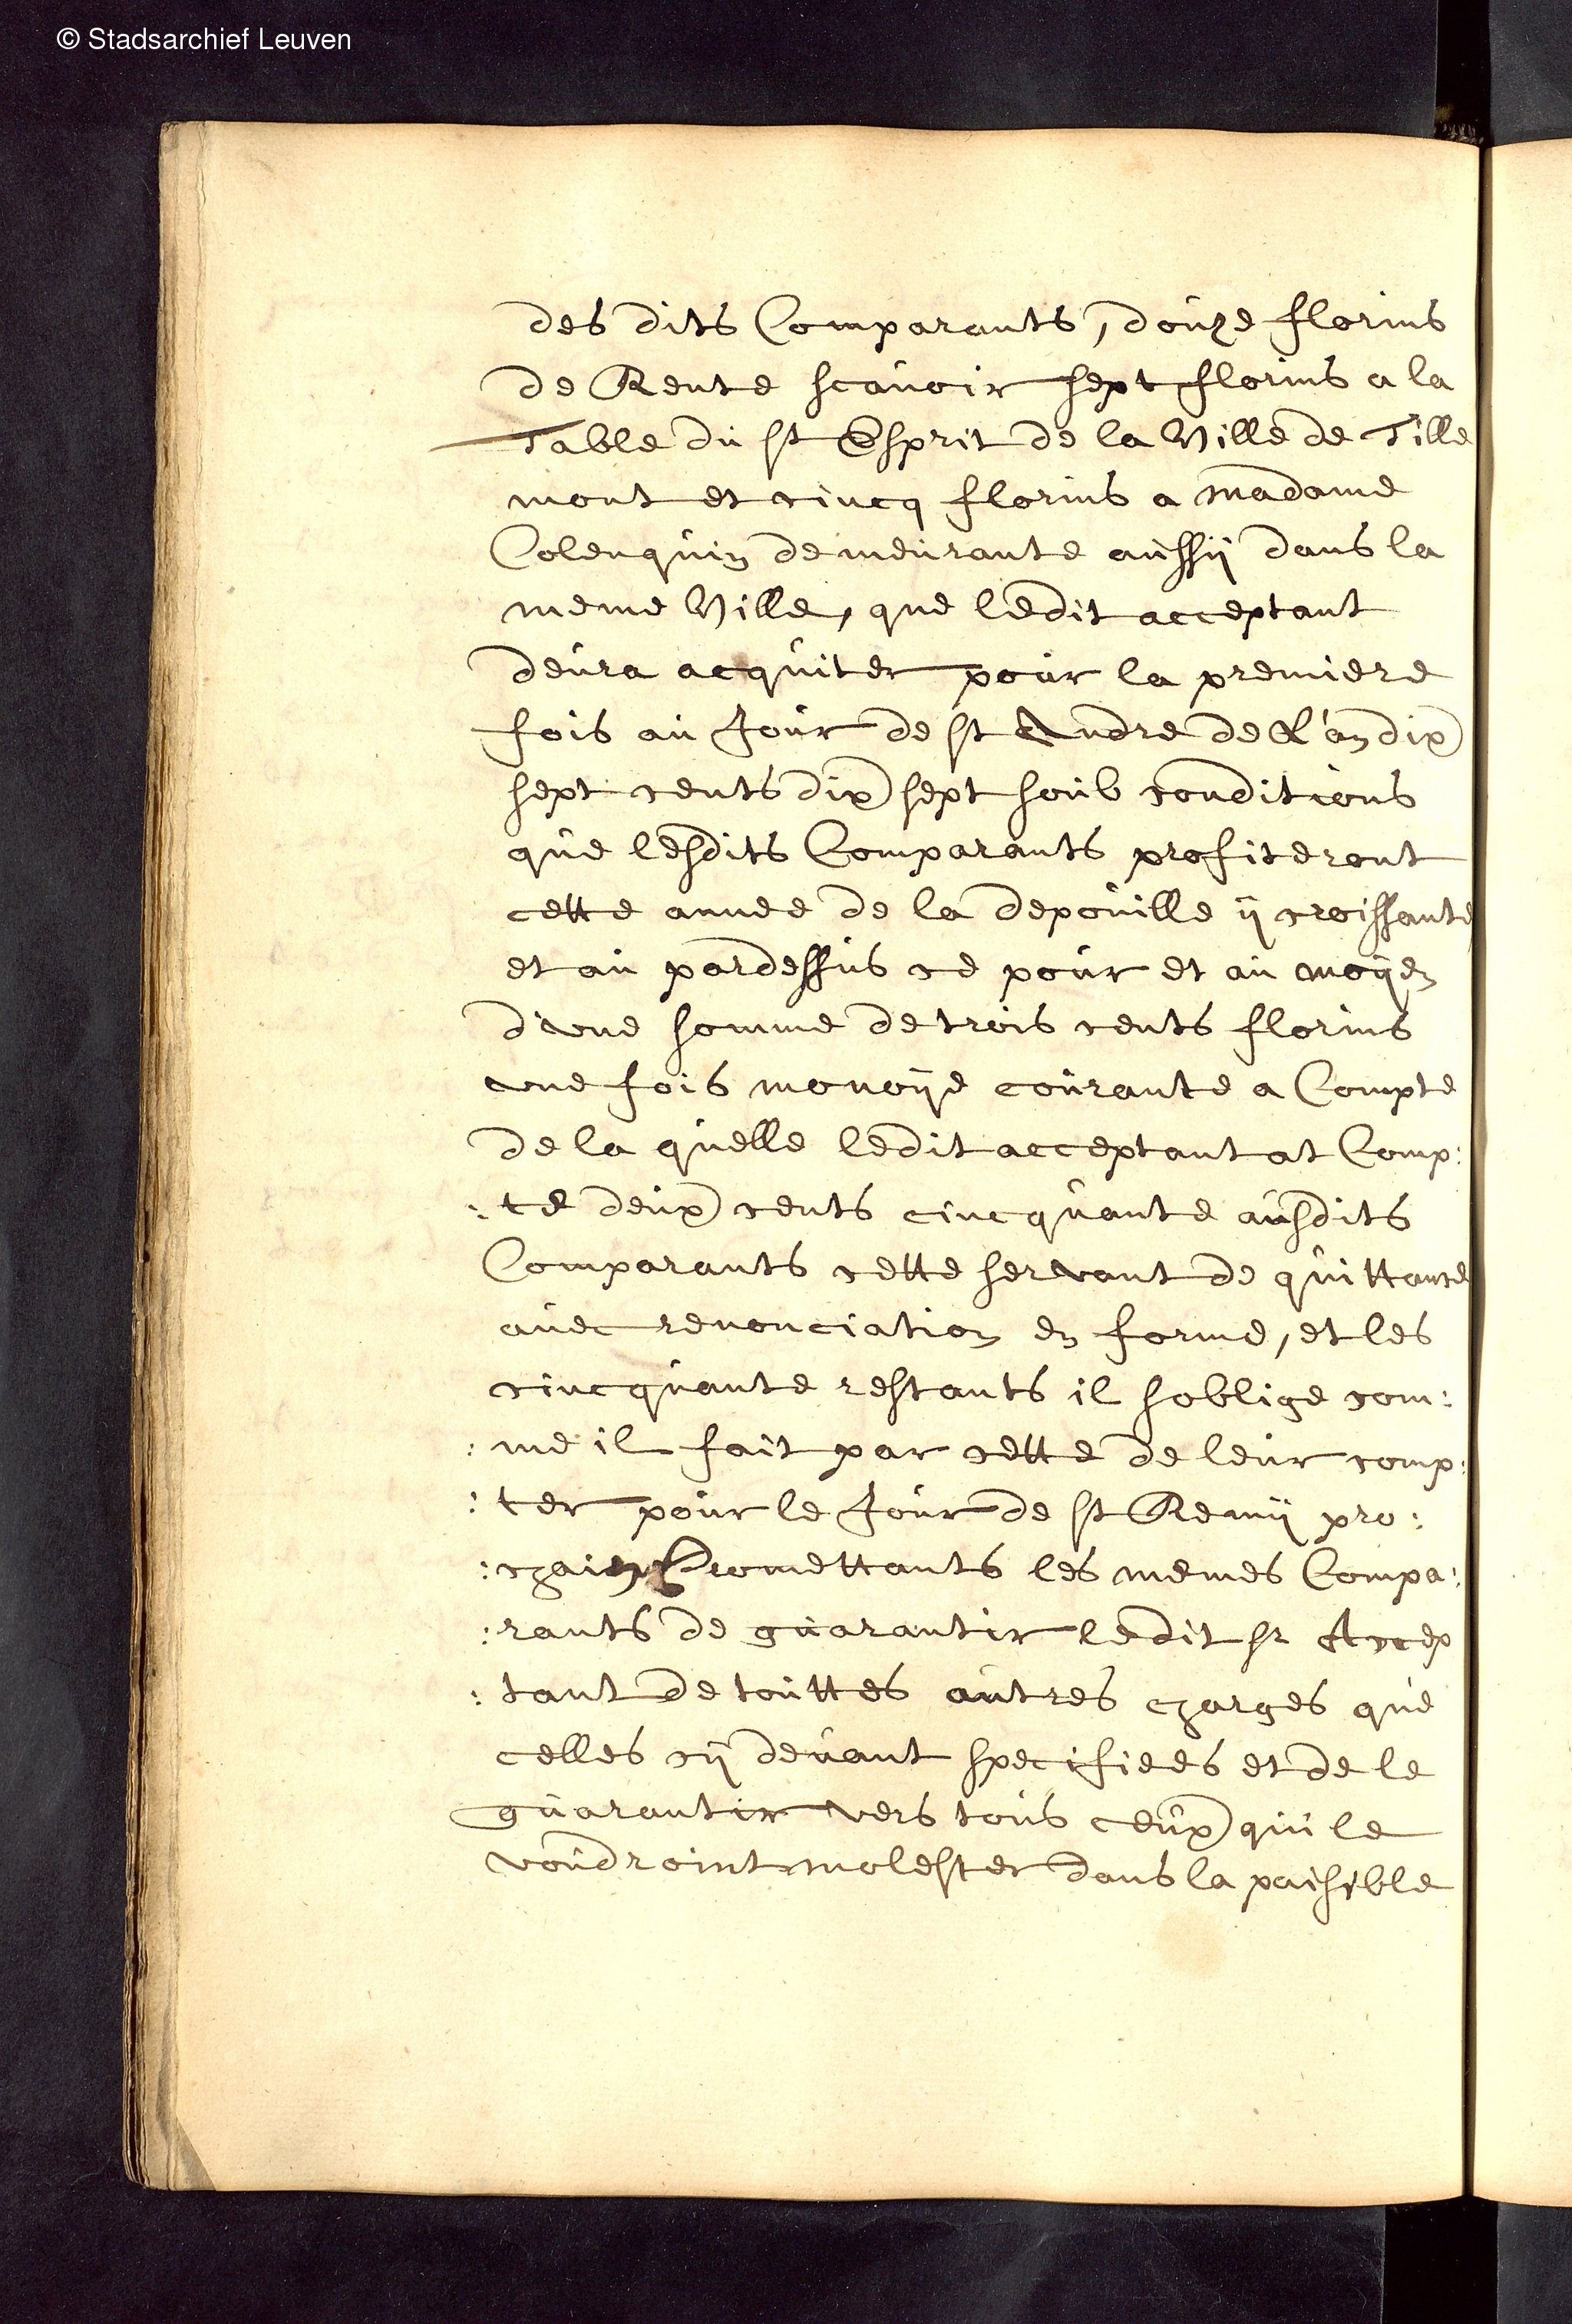 © Stadsarchief Leuven
des dits Comparants, douze florins
de Rente scauoir sept florins a la
Table du st Esprit de la Ville de Tille
mont et cincq florins a madame
Colenquin demeurante aussÿ dans la
meme Ville, que ledit acceptant
deura acquiter pour la premiere
fois au Jour de st Andre de L'an dix
sept cents dix sept soub conditions
que lesdits Comparants profiteront
cette annee de la depouille ÿ croissante
et au pardessus ce pour et au moÿen
d'vne somme de trois cents florins
vne fois monoÿe courante a Compte
de la quelle ledit acceptant at Comp:
:te deux cents cincquante ausdits
Comparants cette servant de quittance
auec renonciation en forme, et les
cincquante restants il soblige com:
:me il fait par cette de leur comp:
:ter pour le Jour de st Remÿ pro:
:chain Promettants les memes Compa:
:rants de guarantir ledit sr Accep
:tant de touttes autres charges que
celles cÿ deuant specifiees et de le
guarantir vers tous ceux qui le
voudroint molester dans la paisible